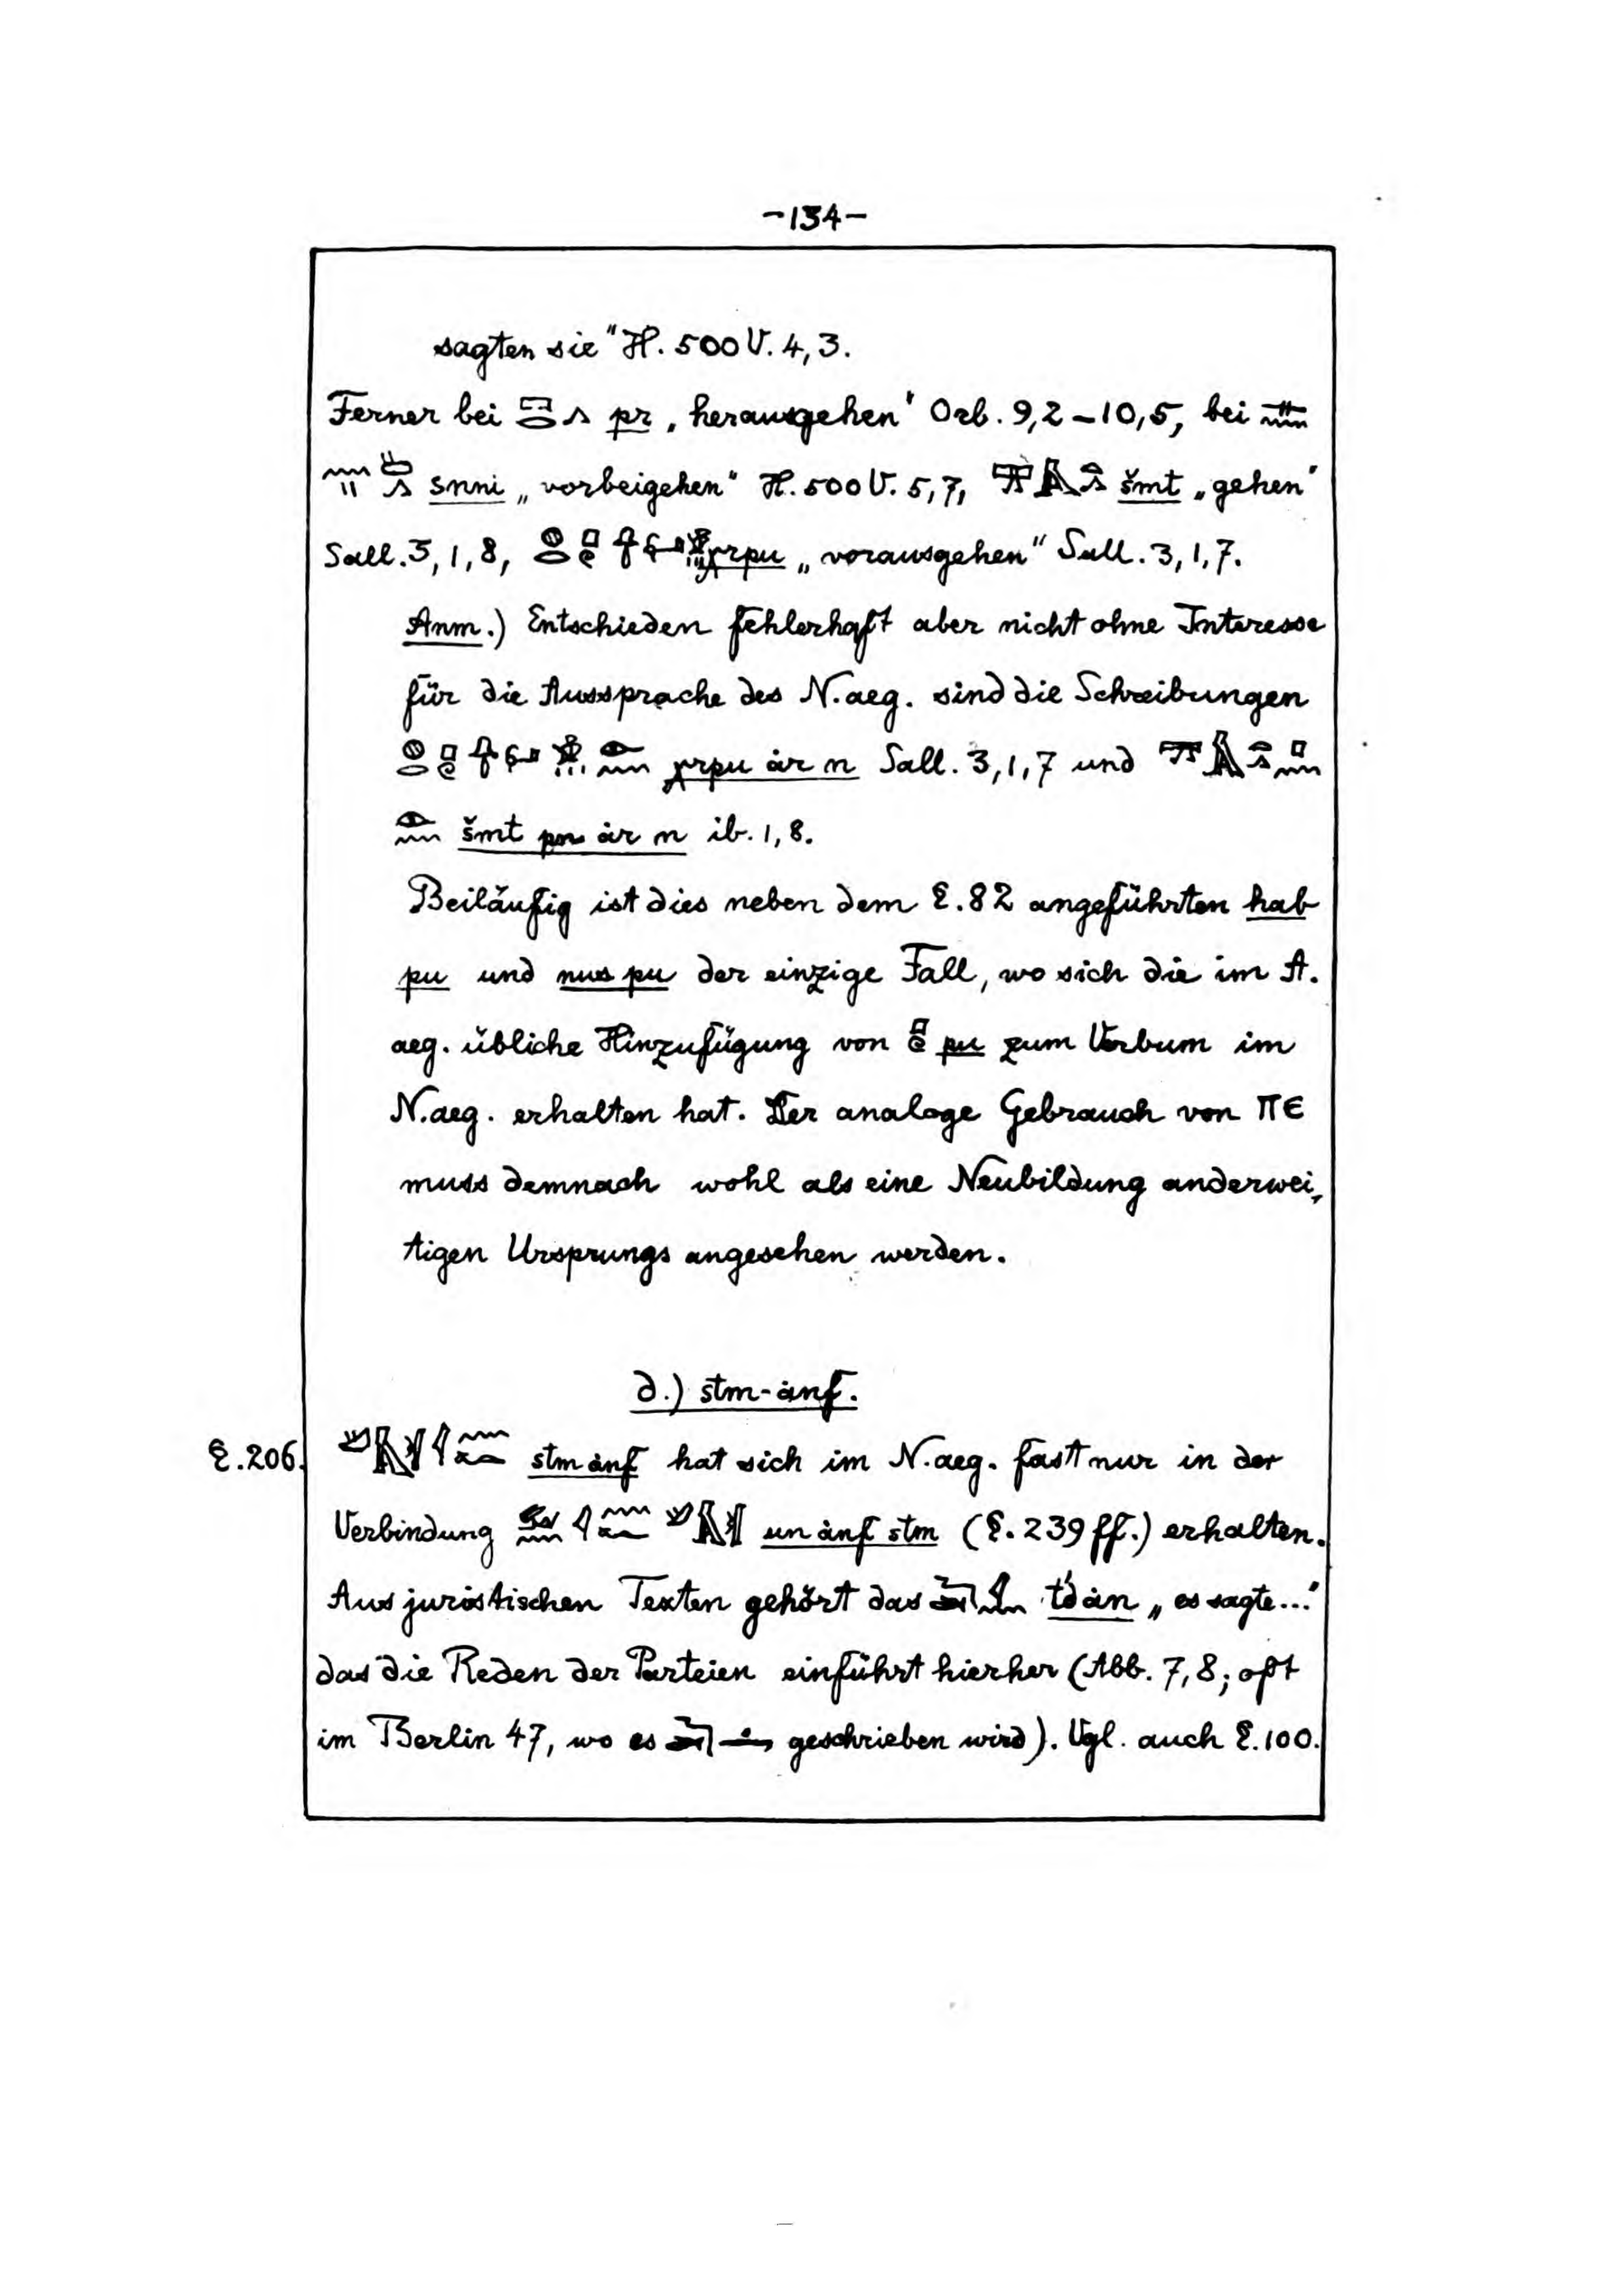 -134-
sagten sie" H. 500 V. 4, 3.
Ferner bei 𓉐𓂋𓂻 pr „herausgehen" Orb. 9,2-10,5, bei
snni „vorbeigehen" H. 500 V. 5,7, šmt „gehen"
Sall. 3, 1, 8, χrpu „vorausgehen" Sall. 3, 1, 7.
Anm.) Entschieden fehlerhaft aber nicht ohne Interesse
für die Aussprache des N.aeg. sind die Schreibungen
χrpu àr n Sall. 3, 1, 7 und
šmt pn àr n ib. 1, 8.
Beiläufig ist dies neben dem §.82 angeführten hab
pu und nus pu der einzige Fall, wo sich die im A.
aeg. übliche Hinzufügung von pu zum Verbum im
N.aeg. erhalten hat. Der analoge Gebrauch von ΠЄ
muss demnach wohl als eine Neubildung anderwei-
tigen Ursprungs angesehen werden.
d.) stm-ànf.
§.206. stm ànf hat sich im N.aeg. fast nur in der
Verbindung un ànf stm (§.239 ff.) erhalten.
Aus juristischen Texten gehört das t'd àn „es sagte..."
das die Reden der Parteien einführt hierher (Abb. 7, 8; oft
im Berlin 47, wo es geschrieben wird). Vgl. auch §.100.